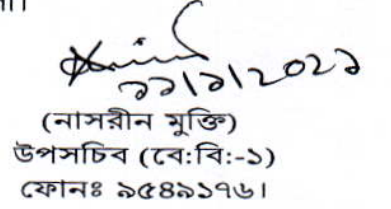 ১১|১|২০২১
(নাসরীন মুক্তি)
উপসচিব (বে:বি:-১)
ফোনঃ ৯৫৪৯১৭৬।